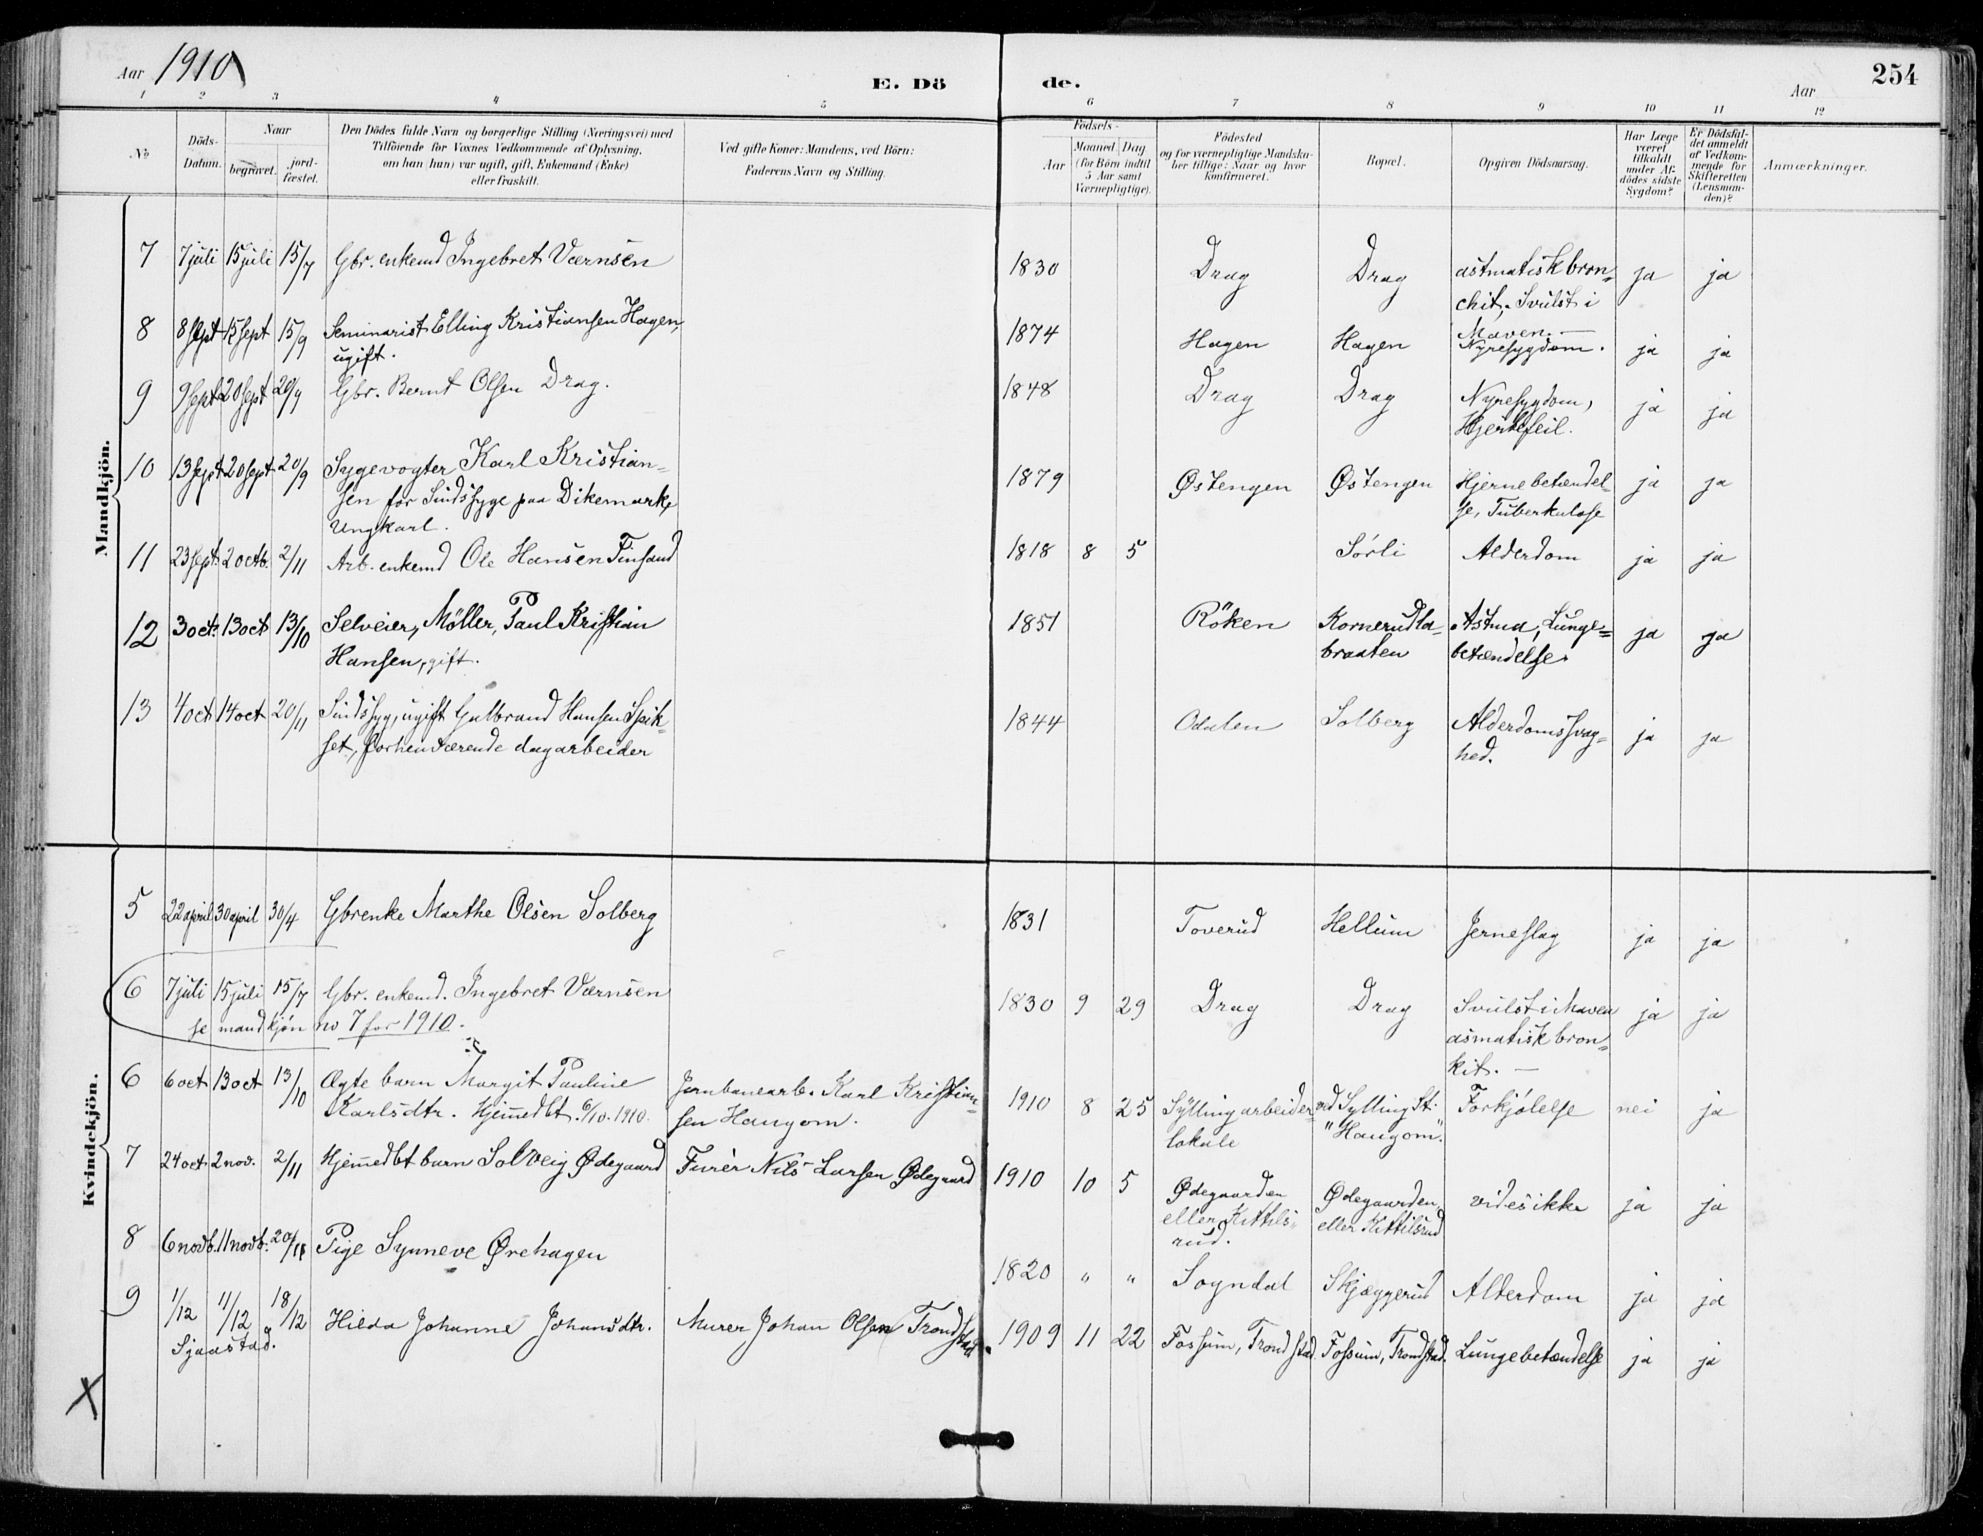 Aar 1910
E. Dö
de.
Aar
254
1 2 3 4 5 6 7 8 9 10 11 12
No
Döds-
Datum.
Naar
begravet.
jord-
fæstet.
Den Dödes fulde Navn og borgerlige Stilling (Næringsvei) med
Tilföiende for Voxnes Vedkommende af Oplysning,
om han (hun) var ugift, gift, Enkemand (Enke)
eller fraskilt.
Ved gifte Koner: Mandens, ved Börn:
Faderens Navn og Stilling.
Födsels-
Aar
Maaned. Dag
(for Börn indtil
5 Aar samt
Værnepligtige).
Födested
og for værnepligtige Mandska-
ber tillige: Naar og hvor
konfirmeret.
Bopæl.
Opgiven Dödsaarsag.
Har Læge
været
tilkaldt
under Af-
dödes sidste
Sygdom?
Er Dödsfal-
det anmeldt
af Vedkom-
mende for
Skifteretten
(Lensman-
den)?
Anmærkninger.
Mandkjön.
7 7 juli 15 juli 15/7 Gbr. enkemd Ingebret Værnsen 1830 Drag Drag astmatisk bron=
chit, Svulst i
Maven. —
ja ja
8 8 sept 15 sept 15/9 Seminarist Elling Kristiansen Hagen,
ugift.
1874 Hagen Hagen Nyresygdom. ja ja
9 9 sept 20 sept 20/9 Gbr. Bernt Olsen Drag. 1848 Drag Drag Nyresygdom,
Hjertefeil.
ja ja
10 13 sept 20 sept 20/9 Sygevogter Karl Kristian=
sen for Sindssyge paa Dikemark,
Ungkarl.
1879 Østengen Østengen Hjernebetændel=
se, Tuberkulose
ja ja
11 23 sept. 2 octb. 2/11 Arb. enkemd Ole Hansen Finsand 1818 8 5 Sørli Alderdom ja ja
12 3 oct. 13 oct 13/10 Selveier, Møller, Paul Kristian
Hansen, gift.
1851 Röken Kornerudla-
braaten
Astma, Lunge=
betændelse.
ja ja
13 4 oct 14 oct 20/11 Sindssyg, ugift Gulbrand Hansen Spik-
set, forhenværende dagarbeider
1844 Odalen Solberg Alderdomssvag=
hed.
ja ja
Kvindekjön.
5 22 april 30 april 30/4 Gbrenke Marthe Olsen Solberg 1831 Toverud Hellum Jerneslag ja ja
6 7 juli 15 juli 15/7 Gbr. enkemd. Ingebret Værnsen
se mandkjön no 7 for 1910.
1830 9 29 Drag Drag Svulst i Maven
asmatisk bron=
kit. —
ja ja
6 6 oct 13 oct 13/10 Ægte barn Margit Pauline
Karlsdtr. Hjemmedbt. 6/10. 1910.
Jernbanearb. Karl Kristian-
sen Haugom.
1910 8 25 Sylling arbeider
lokale
ved Sylling St.
"Haugom".
Forkjølelse nei ja
7 24 oct 2 nov. 2/11 Hjemmedbt barn Solveig Ødegaard Furèr Nils Larsen Ødegaard 1910 10 5 Ødegaarden
eller Kittils-
rud.
Ødegaarden
eller Kittilsrud
vides ikke ja ja
8 6 novb. 11 novb. 20/11 Pige Synneve Ørehagen 1820 " " Sogndal Skjæggerud Alderdom ja ja
9 1/12 11/12 18/12 Hilda Johanne Johansdtr. Murer Johan Olsen Trondstad. 1909 11 22 Fossum, Trondstad Fossum, Trondstad. Lungebetændelse ja ja
Sjaastad.
X